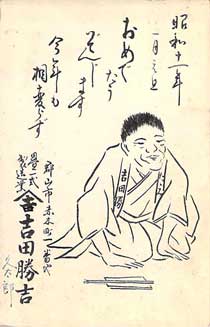 昭和十一年
一月元旦
おめで
たう
ぞんじ
ます
今年も
相変らず
吉田勝
郡山市赤木町一番地
畳一式
製造業
吉田勝吉